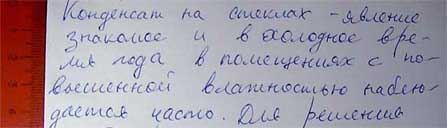 Конденсат на стеклах - явление
знакомое и в холодное вре-
мя года в помещениях с по-
вышенной влажностью наблю-
дается часто. Для решения